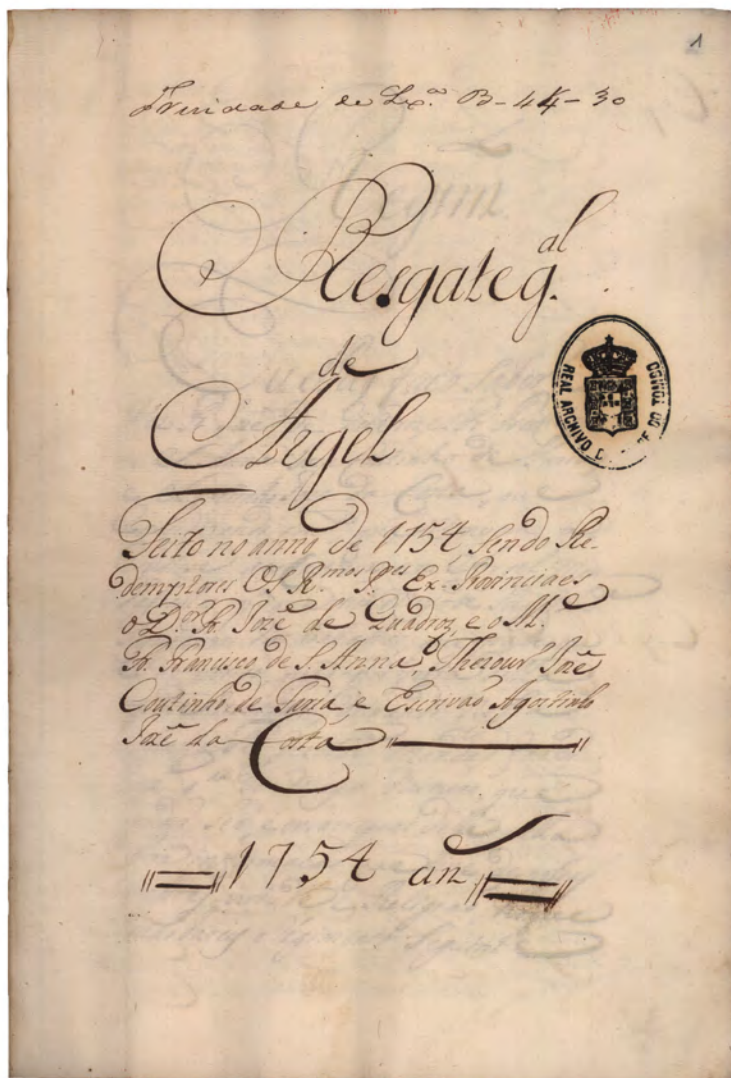 1
Trindade de Lxª. B-44-30
Resgate g.al
de
Argel
Feito no anno de 1754, sendo Re-
demptores Os R.mos P.es Ex-Provinciaes
o D.or Fr. Jozé de Quadroz, e o M.e
Fr. Francisco de S. Anna, Thezour.o Jozé
Coutinho de Faria, e Escrivaõ Agostinho
Jozé da Costa
1754 an
REAL ARCHIVO DO TOMBO